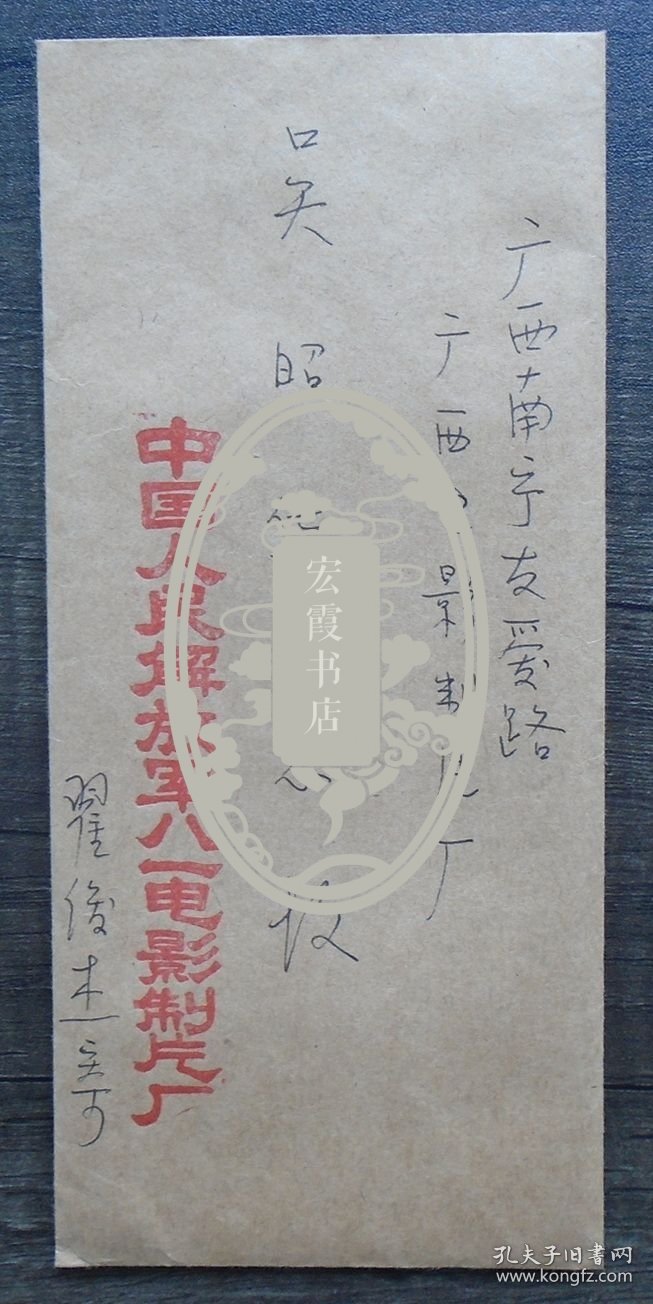 广西南宁友爱路
广西电影制片厂
吴昭 志收
中国人民解放军八一电影制片厂
翟俊杰寄
宏霞书店
孔夫子旧书网
www.kongfz.com